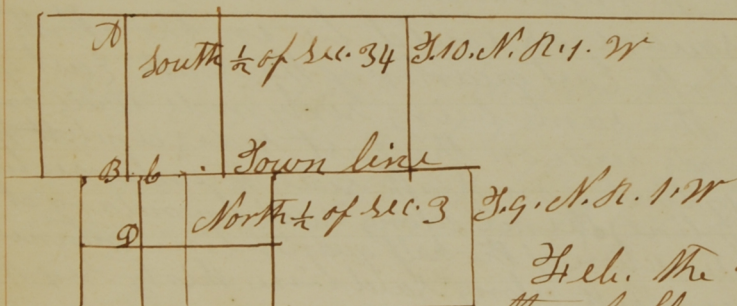 A
South ½ of Sec. 34 T.10.N.R.1.W
B C . Town line
North ½ of Sec. 3 T.9.N.R.1.W
D
Feb. the